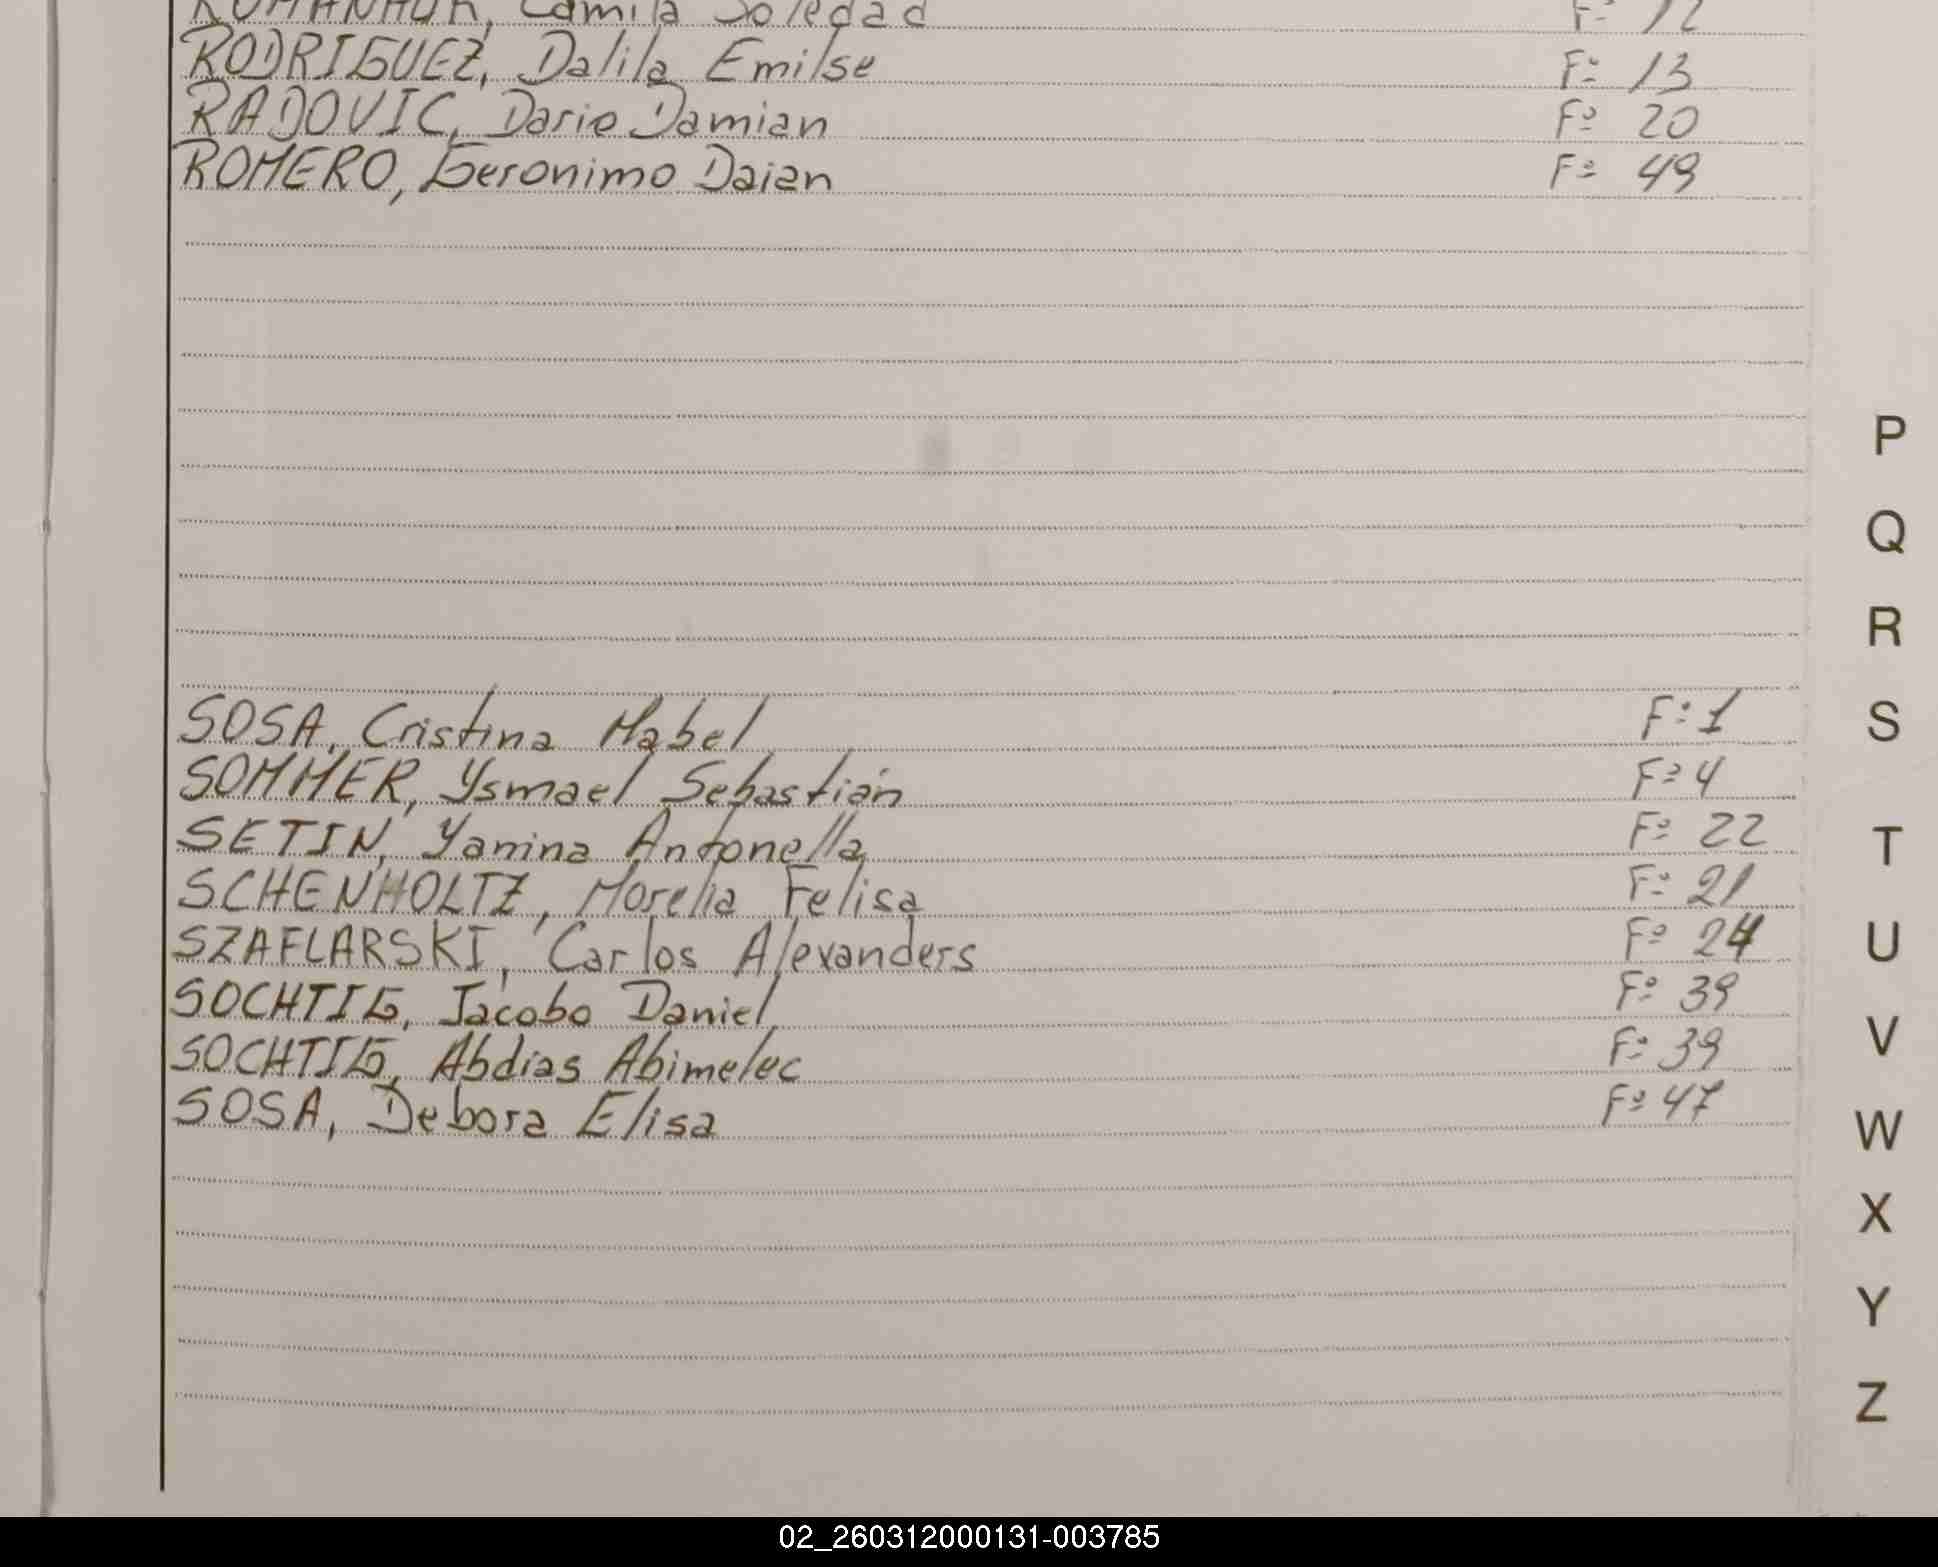 Camila Soledad Fº 12
RODRIGUEZ, Dalila Emilse Fº 13
RADOVIC, Dario Damian Fº 20
ROMERO, Geronimo Daian Fº 49
P
Q
R
S
SOSA, Cristina Mabel Fº 1
SOMMER, Ysmael Sebastián Fº 4
SETIN, Yanina Antonella Fº 22
T
SCHENHOLTZ, Morelia Felisa Fº 21
SZAFLARSKI, Carlos Alexanders Fº 24
U
SOCHTIG, Jacobo Daniel Fº 39
V
SOCHTIG, Abdias Abimelec Fº 39
SOSA, Debora Elisa Fº 47
W
X
Y
Z
02_260312000131-003785